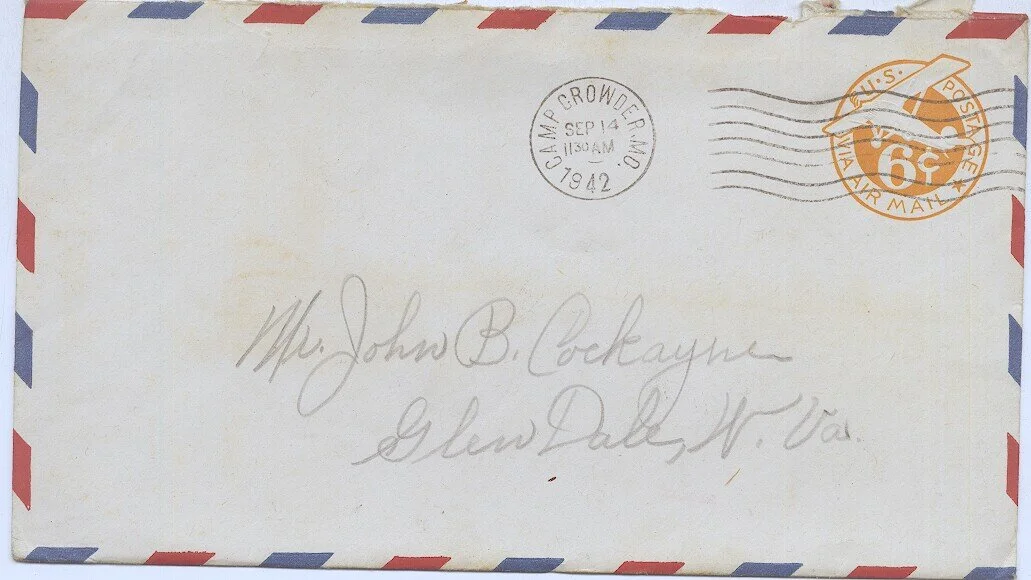 CAMP CROWDER, MO.
SEP 14
1130 AM
1942
U.S. POSTAGE
6¢
VIA AIR MAIL
Mr. John B. Cockayne
Glen Dale, W. Va.